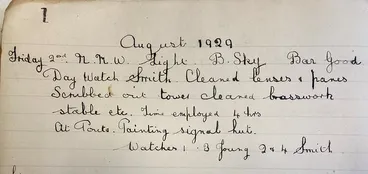 1
August 1929
Friday 2nd N.N.W. Light B. Sky Bar Good
Day Watch Smith. Cleaned lenses & panes
Scrubbed out tower cleaned brasswork
stable etc. Time employed 4 hrs
At Route. Painting signal hut.
Watches 1 B Young 3 & 4 Smith